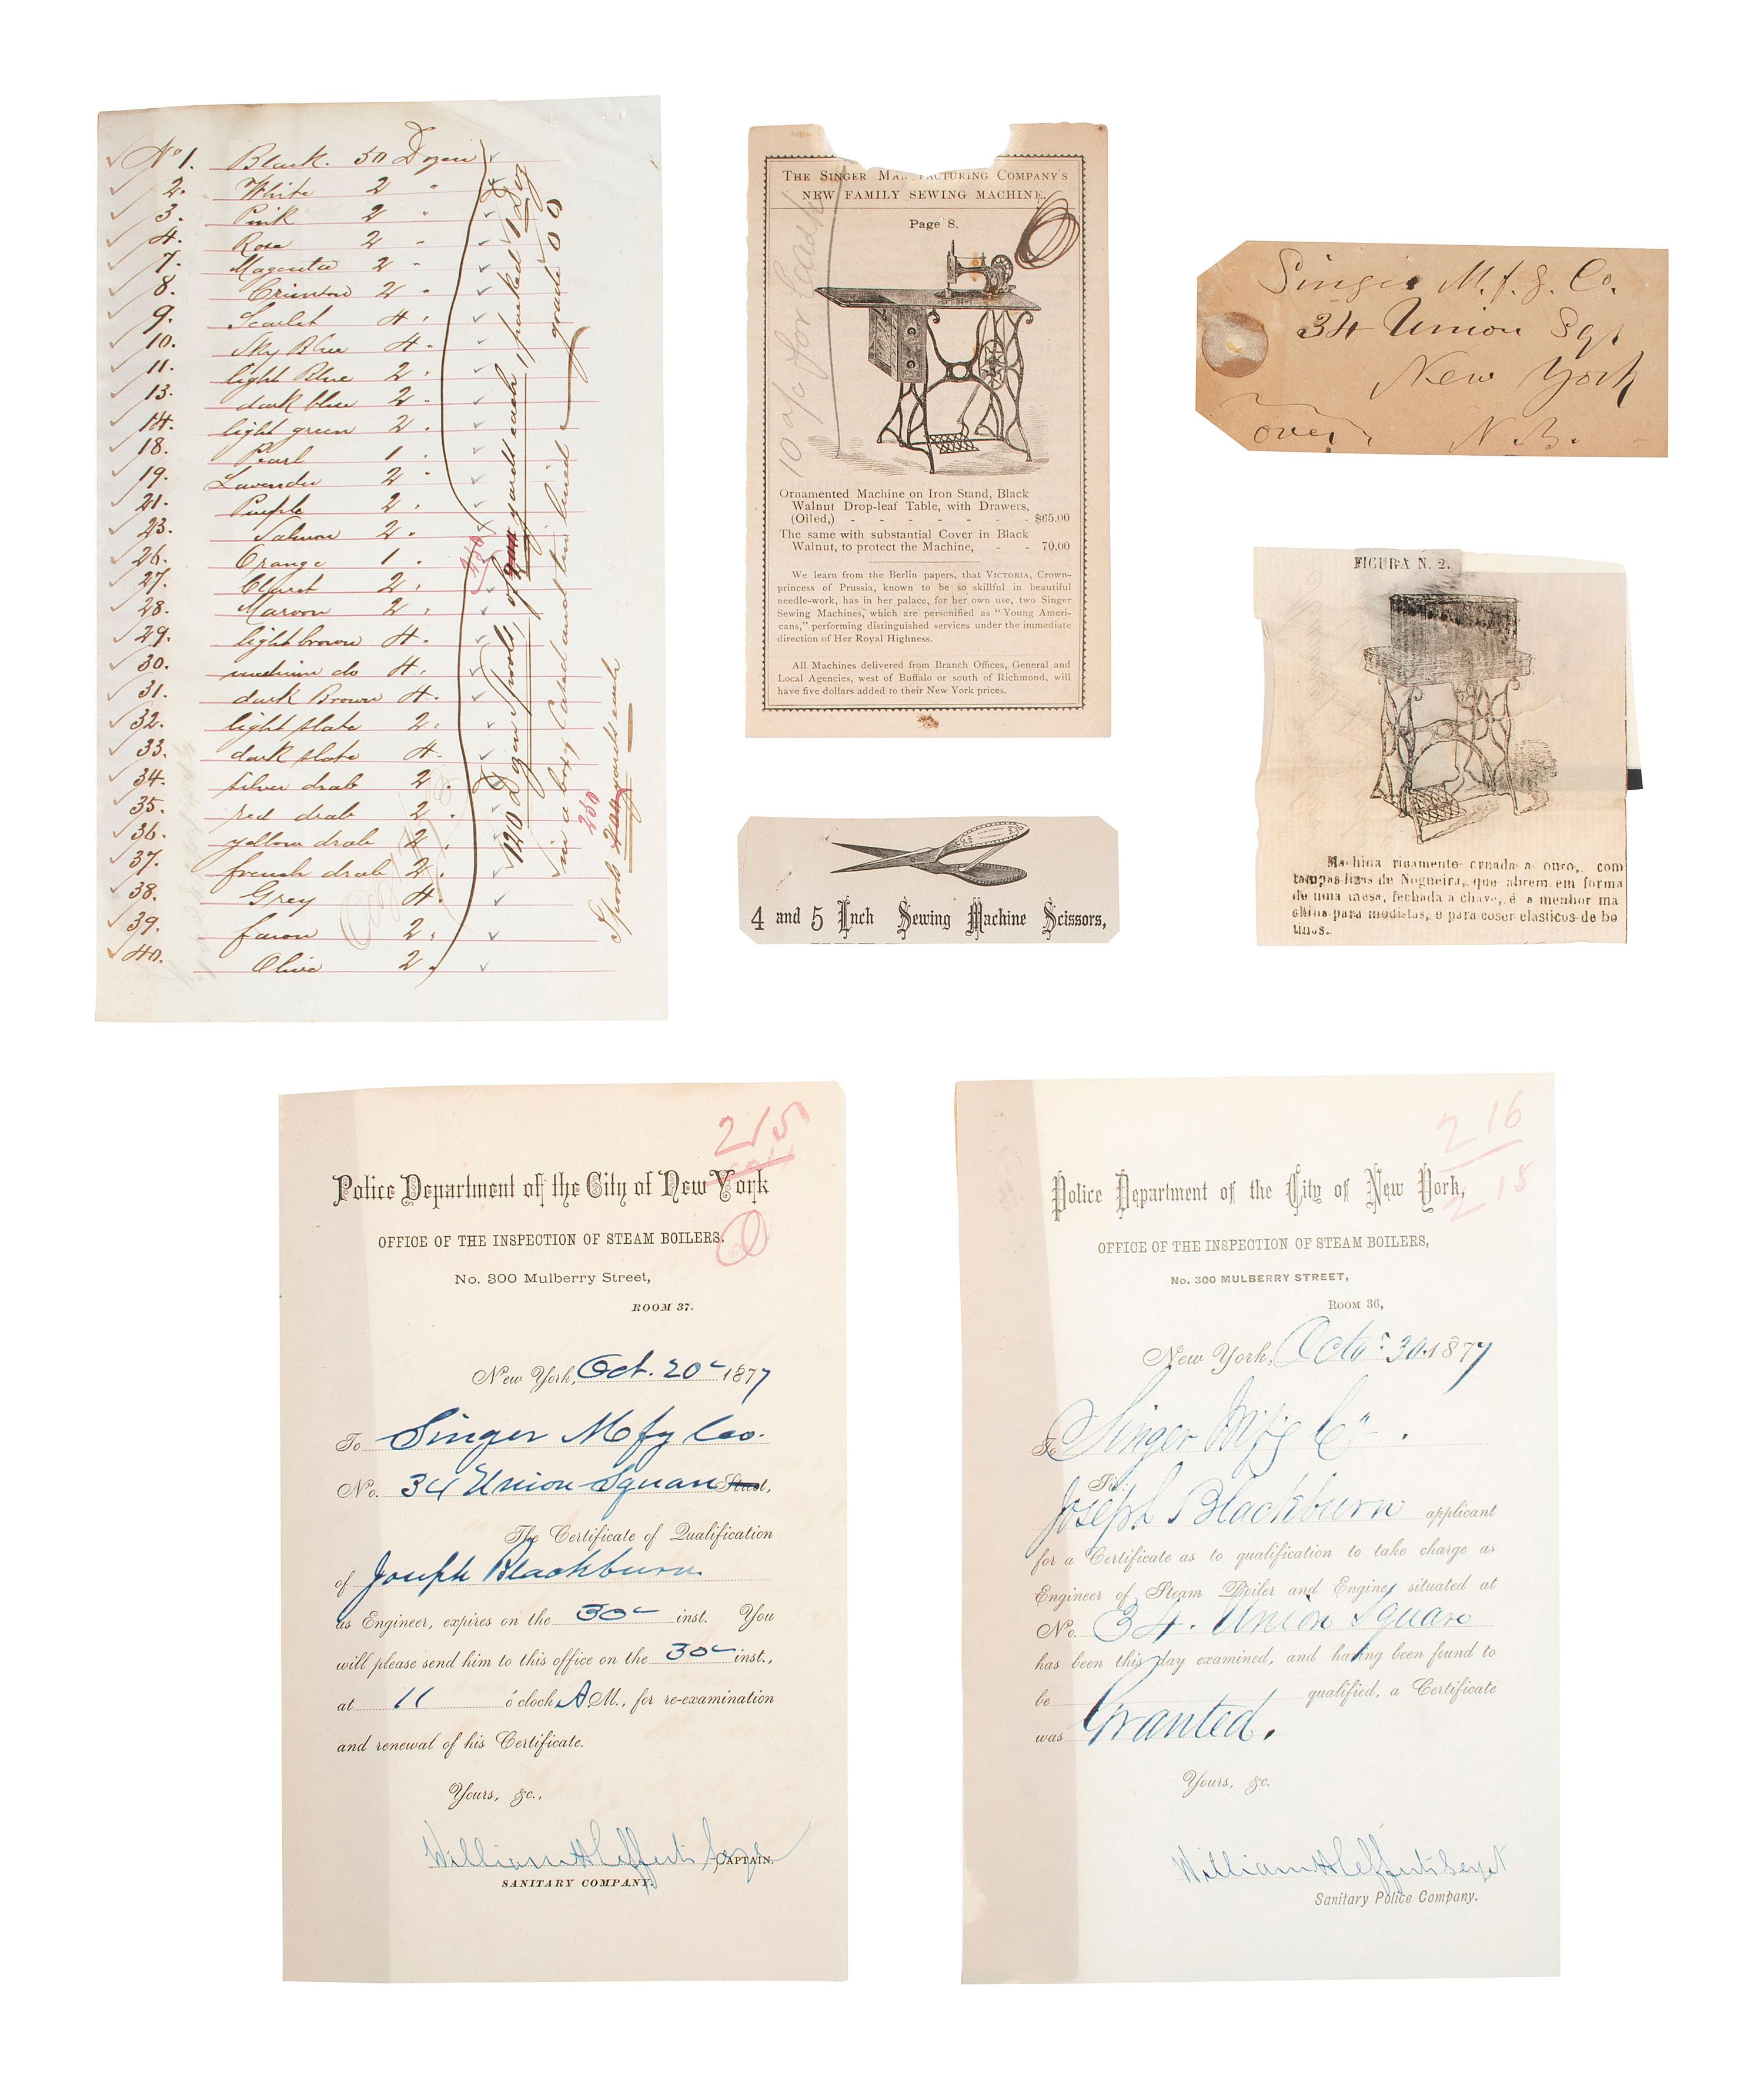 No 1. Black. 50 Dozen
2. White 2 "
3. Pink 2 "
4. Rose 2 "
7. Magenta 2 "
8. Crimson 2 "
9. Scarlet 4 "
10. Sky Blue 4 "
11. light Blue 2 "
13. dark blue 2 "
14. light green 2 "
18. Pearl 1 "
19. Lavender 2 "
21. Purple 2 "
23. Salmon 2 "
26. Orange 1 "
27. Claret 2 "
28. Maroon 2 "
29. light brown 4 "
30. medium do 4 "
31. dark Brown 4 "
32. light slate 2 "
33. dark slate 4 "
34. silver drab 2 "
35. red drab 2 "
36. yellow drab 2 "
37. french drab 2 "
38. Grey 4 "
39. fawn 2 "
40. Olive 2 "
120 Dozen Spools, of 200 yards each, packed 1 Doz
450
in a box, Cased and tin lined grade 00
Spools 200 yards each
250
THE SINGER MANUFACTURING COMPANY'S
NEW FAMILY SEWING MACHINE.
Page 8.
10 o/o for Cash
Ornamented Machine on Iron Stand, Black
Walnut Drop-leaf Table, with Drawers,
(Oiled,) - - - - - - - $65.00
The same with substantial Cover in Black
Walnut, to protect the Machine, - - 70.00
We learn from the Berlin papers, that VICTORIA, Crown-
princess of Prussia, known to be so skillful in beautiful
needle-work, has in her palace, for her own use, two Singer
Sewing Machines, which are personified as "Young Ameri-
cans," performing distinguished services under the immediate
direction of Her Royal Highness.
All Machines delivered from Branch Offices, General and
Local Agencies, west of Buffalo or south of Richmond, will
have five dollars added to their New York prices.
Singer M.f.g. Co.
34 Union Sqr
New York
over. N.B.
4 and 5 Inch Sewing Machine Scissors,
FIGURA N. 2.
Machina ricamente ornada a ouro, com
tampas lizas de Nogueira, que abrem em forma
de uma mesa, fechada a chave, é a menhor ma
china para modistas, e para coser elasticos de bo
tinas.
215
Police Department of the City of New York
OFFICE OF THE INSPECTION OF STEAM BOILERS.
No. 300 Mulberry Street,
ROOM 37.
New York, Oct. 20 1877
To Singer Mfg Co.
No. 34 Union Square Street,
The Certificate of Qualification
of Joseph Blackburn
as Engineer, expires on the 30 inst. You
will please send him to this office on the 30 inst.,
at 11 o'clock A M., for re-examination
and renewal of his Certificate.
Yours, &c.,
William H Leffert Sergt CAPTAIN.
SANITARY COMPANY.
216
215
Police Department of the City of New York,
OFFICE OF THE INSPECTION OF STEAM BOILERS,
No. 300 MULBERRY STREET,
ROOM 36,
New York, Octo: 30 1877
To Singer Mfg Co.
Sir:
Joseph Blackburn applicant
for a Certificate as to qualification to take charge as
Engineer of Steam Boiler and Engine, situated at
No. 34. Union Square
has been this day examined, and having been found to
be qualified, a Certificate
was Granted.
Yours, &c.
William H Leffert Sergt
Sanitary Police Company.